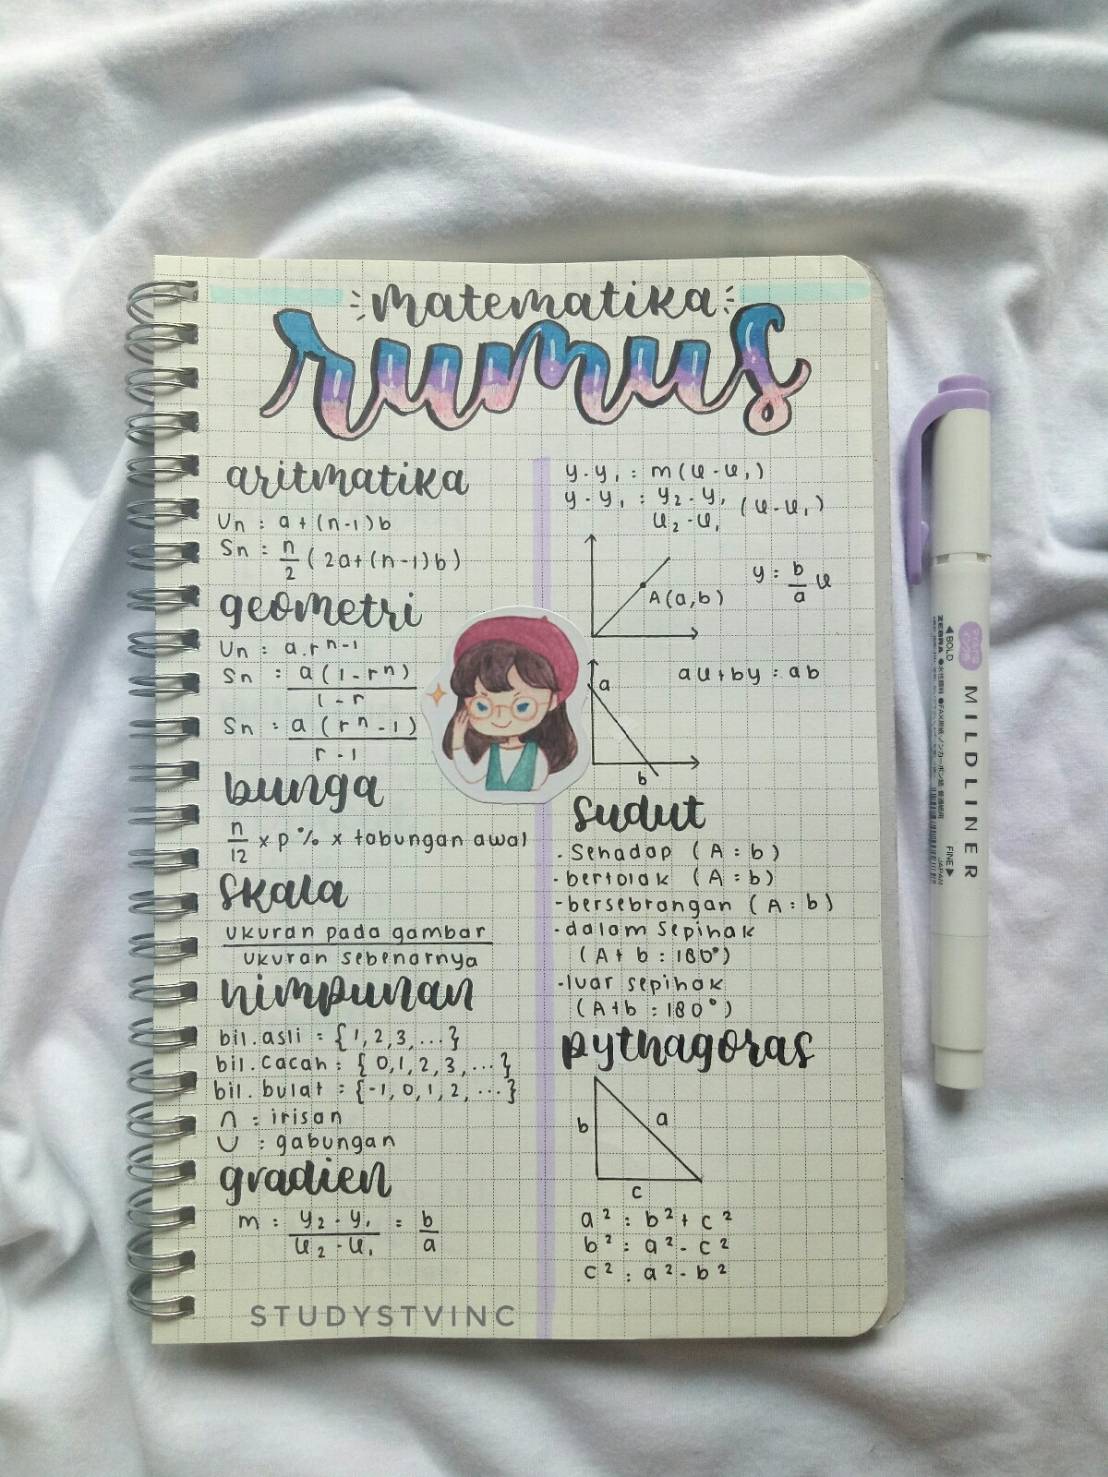 matematika
rumus
aritmatika
Un = a + (n-1)b
Sn = n/2 (2a+(n-1)b)
geometri
Un = a.rⁿ⁻¹
Sn = a(1-rⁿ)/1-r
Sn = a(rⁿ-1)/r-1
bunga
n/12 x p% x tabungan awal
skala
ukuran pada gambar
ukuran sebenarnya
himpunan
bil.asli = {1,2,3,...}
bil.cacah = {0,1,2,3,...}
bil.bulat = {-1,0,1,2,...}
∩ = irisan
∪ = gabungan
gradien
m = y₂-y₁/x₂-x₁ = b/a
STUDYSTVINC
y-y₁ = m(x-x₁)
y-y₁ = y₂-y₁/x₂-x₁ (x-x₁)
A(a,b)
y = b/a x
a
ax+by = ab
b
sudut
- Sehadap (A = b)
- bertolak (A = b)
- bersebrangan (A = b)
- dalam sepihak
(A + b = 180°)
- luar sepihak
(A+b = 180°)
pythagoras
b
a
c
a² = b²+c²
b² = a²-c²
c² = a²-b²
MILDLINER
◀BOLD
FINE▶
ZEBRA
JAPAN